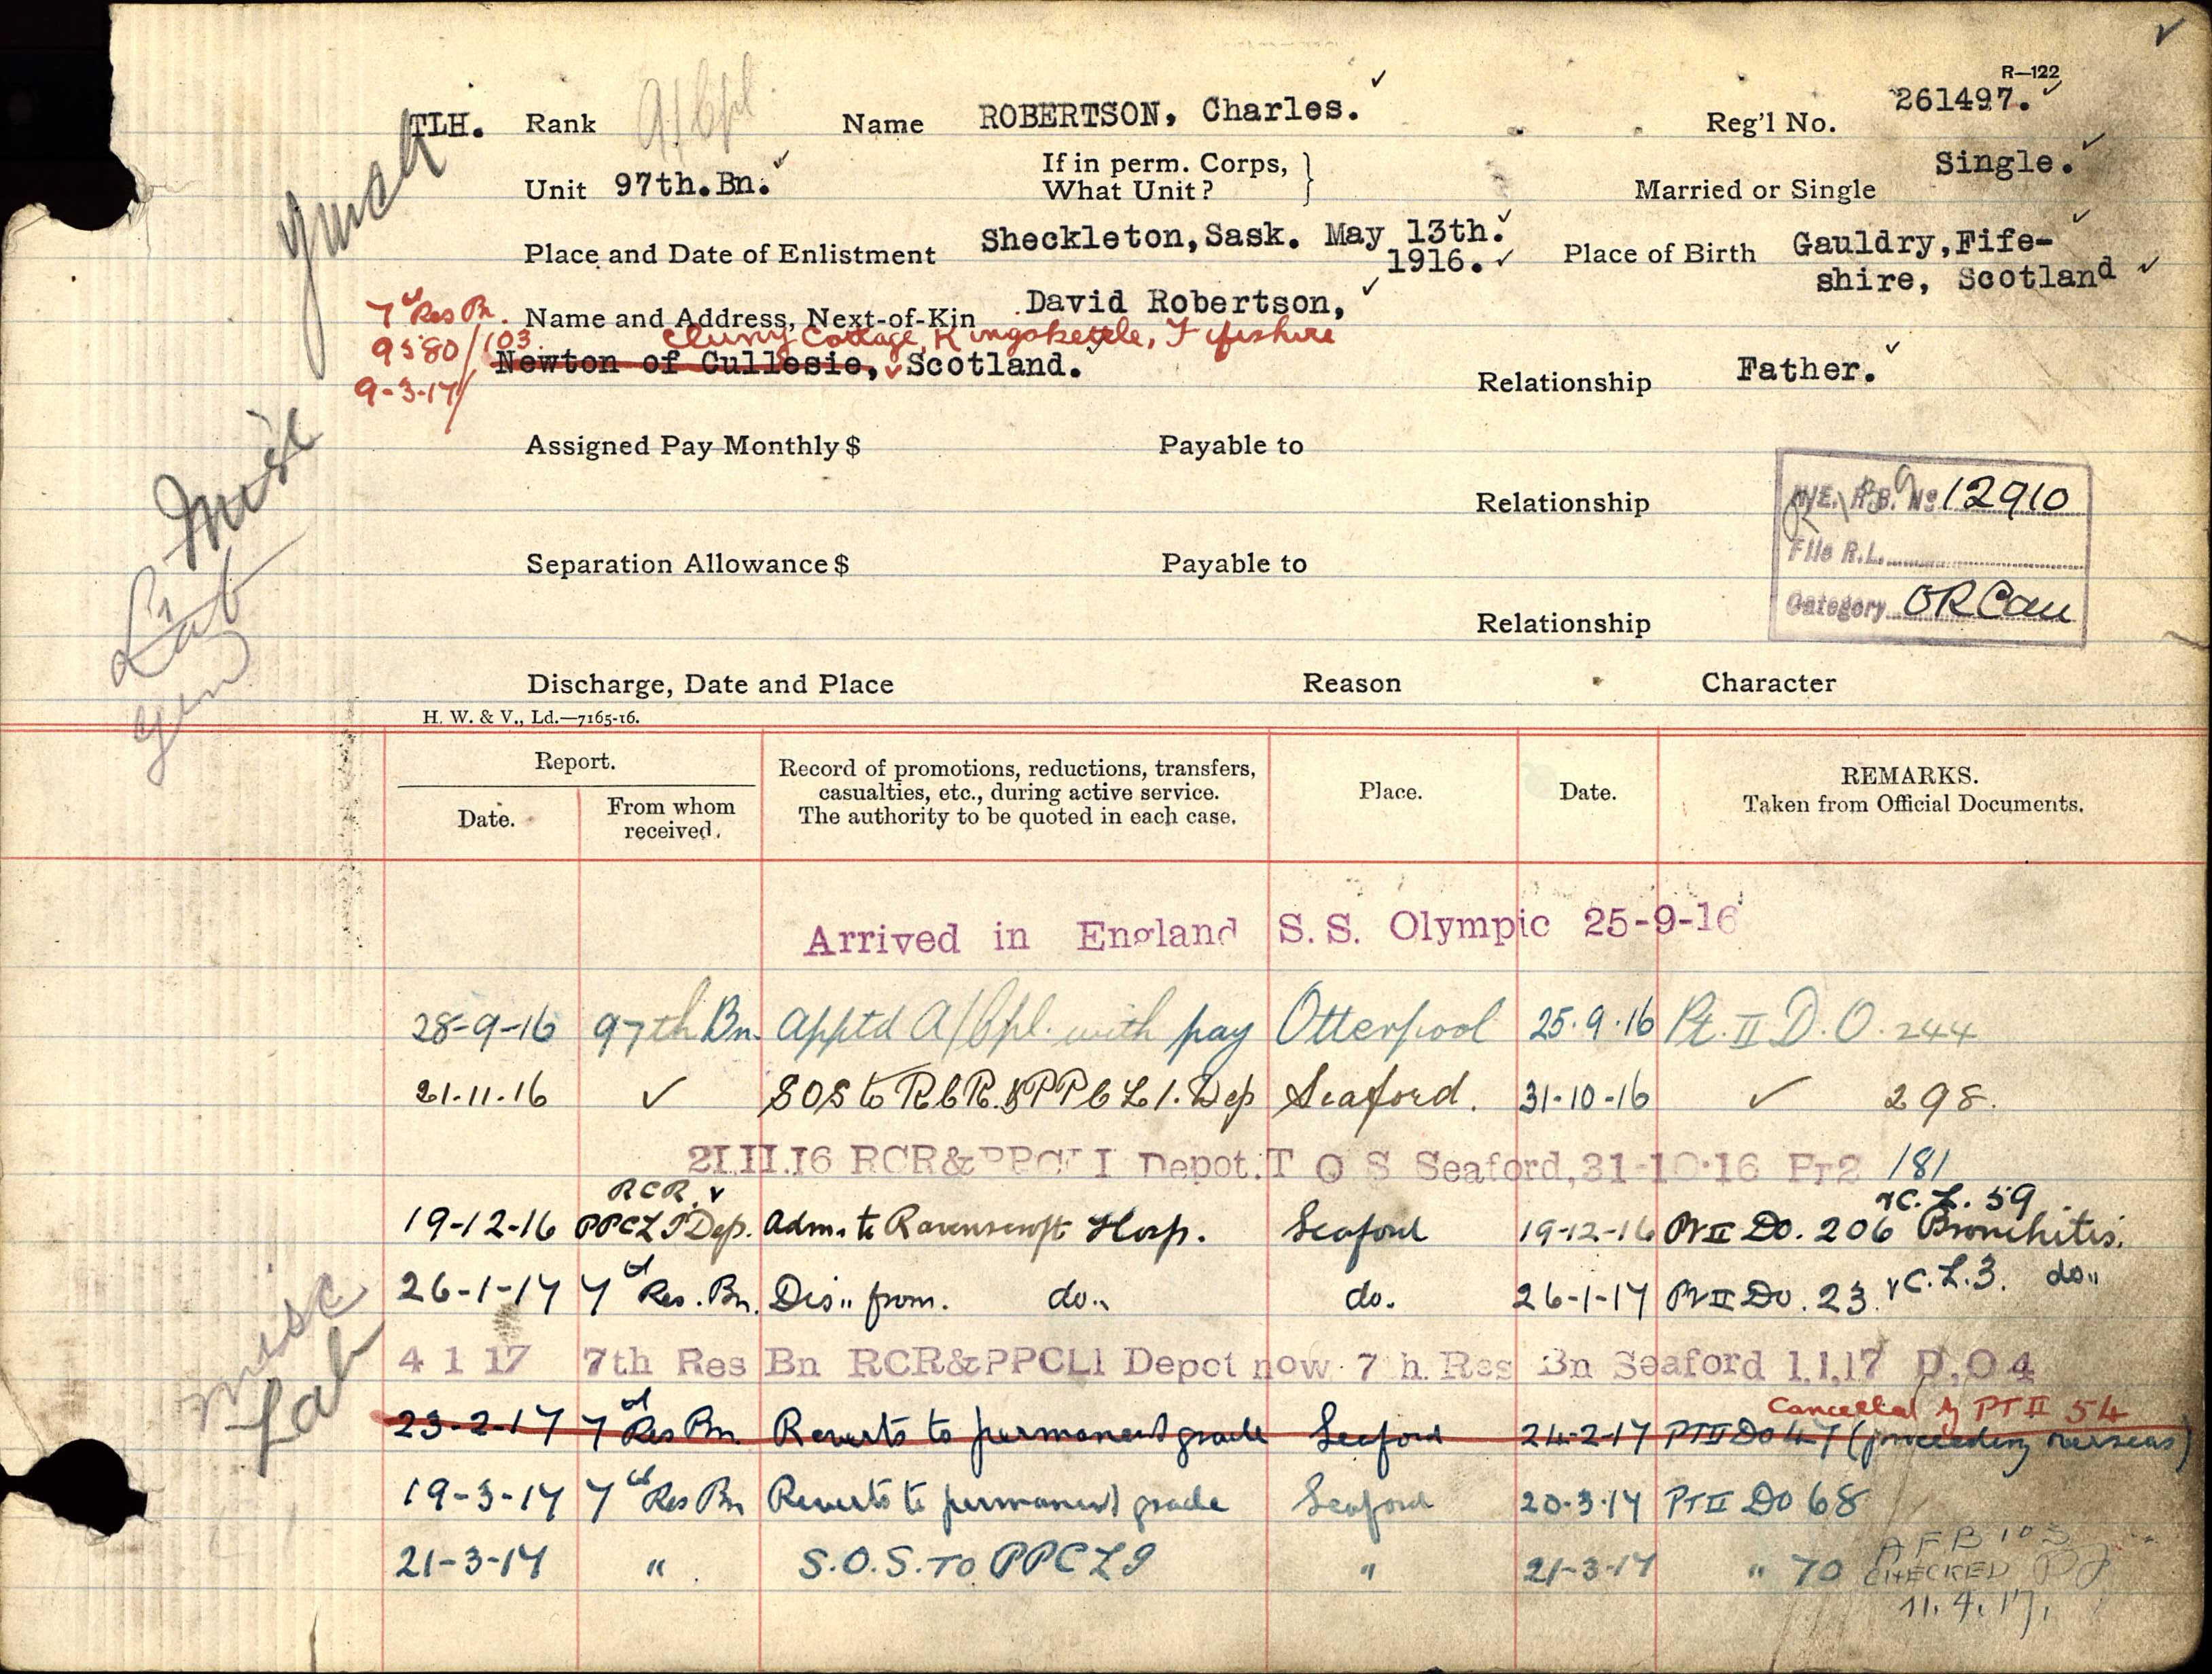 R—122
TLH. Rank A/Cpl. Name ROBERTSON, Charles. Reg'l No. 261497.
Unit 97th.Bn. If in perm. Corps, What Unit? } Married or Single Single.
Place and Date of Enlistment Sheckleton,Sask. May 13th. 1916. Place of Birth Gauldry,Fife-
shire, Scotland
7th Res Bn. Name and Address, Next-of-Kin David Robertson,
9580/103. Cluny Cottage, Kingskettle, Fifeshire
9-3-17 Newton of Cullesie, Scotland. Relationship Father.
Assigned Pay Monthly $ Payable to
Relationship
No 12910
File R.L.
Category OR Can
Separation Allowance $ Payable to
Relationship
Misc
Lab
Gen
Discharge, Date and Place Reason Character
H. W. & V., Ld.—7165-16.
Report.
Date. From whom received. Record of promotions, reductions, transfers, casualties, etc., during active service. The authority to be quoted in each case. Place. Date. REMARKS. Taken from Official Documents.
Arrived in England S.S. Olympic 25-9-16
28-9-16 97th Bn. Apptd A/Cpl. with pay Otterpool 25.9.16 Pt. II D.O. 244
21.11.16 ✓ SOS to RCR. & PPCLI. Dep Seaford. 31-10-16 ✓ 298.
21.11.16 RCR&PPCLI Depot. T O S Seaford, 31-10-16 Pt2 181
19-12-16 RCR. PPCLI Dep. Adm. to Ravenscroft Hosp. Seaford 19-12-16 Pt II DO. 206 C.L. 59. Bronchitis.
26-1-17 7th Res. Bn. Dis" from. do.. do. 26-1-17 Pt II DO. 23. C.L.3. do"
4 1 17 7th Res Bn RCR&PPCLI Depot now 7 h. Res Bn Seaford 1.1.17 D.O 4
Misc
Lab
Cancelled by PT II 54
23-2-17 7th Res Bn. Reverts to permanent grade Seaford 24-2-17 PT II DO 47 (proceeding overseas)
19-3-17 7th Res Bn Reverts to permanent grade Seaford 20-3-17 PT II DO 68
21-3-17 " S.O.S. TO PPCLI " 21-3-17 " 70
AFB 103
CHECKED
11.4.17.